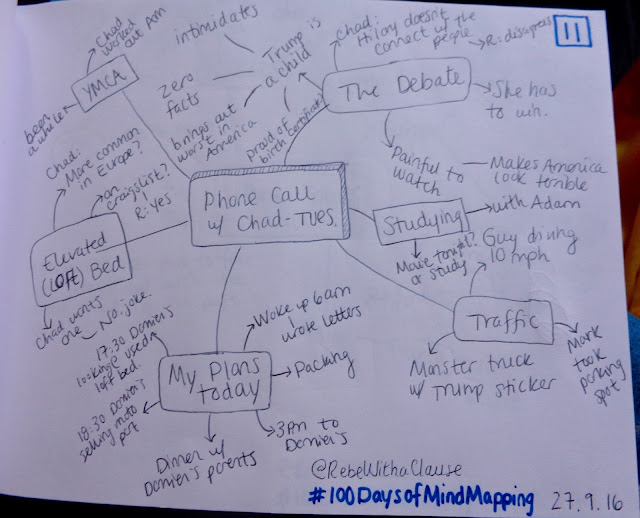 11
Chad
worked
out 7am
YMCA
been
a while
intimidates
Zero
facts
Trump is
a child
brings out
worst in
America
proud of
birth certificate
Chad:
Hilary doesn't
connect w/ the
people
R: disagrees
The Debate
She has
to win.
Painful to
watch
Makes America
look terrible
Phone Call
w/ Chad-TUES.
Studying
with Adam
Movie tonight?
or study
Chad:
More common
in Europe?
on
craigslist?
R: Yes
Elevated
(Loft) Bed
Chad wants
one
No joke.
Guy driving
10 mph
Traffic
Monster truck
w/ Trump sticker
Mark
took
parking
spot
17:30 Damier's
looking @ used
loft bed.
18:30 Damier's
selling moto
part
My Plans
today
Woke up 6am
wrote letters
Packing
3PM to
Damier's
Dinner w/
Damier's parents
@RebeWithaClause
#100DaysofMindMapping 27.9.16